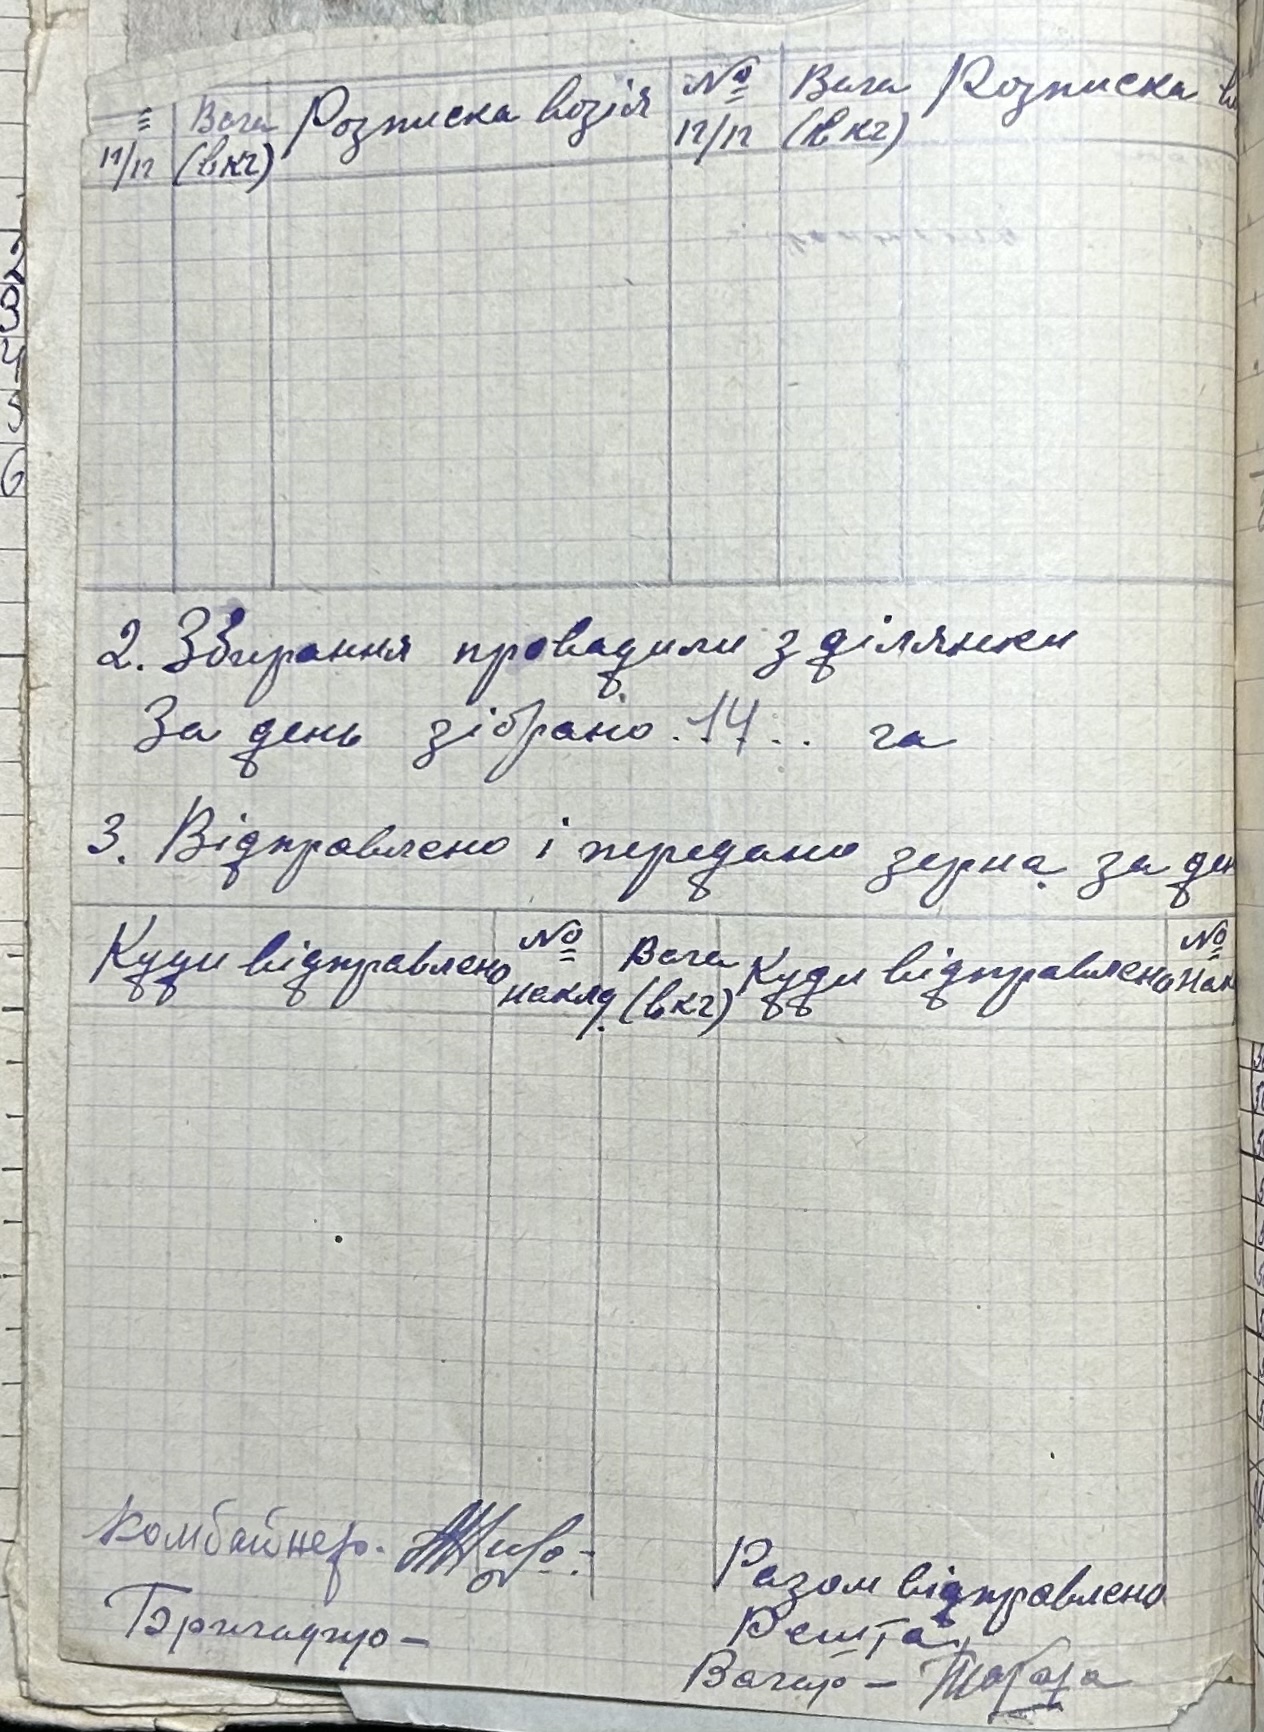 Вага Розписка возія № Вага Розписка
п/п (в кг) п/п (в кг)
2. Збирання провадили з ділянки
За день зібрано . 14 . . га
3. Відправлено і передано зерна за
Куди відправлено № Вага Куди відправлено №
накл. (в кг)
Комбайнер.
Бригадир –
Разом відправлено
Решта
Вагар –